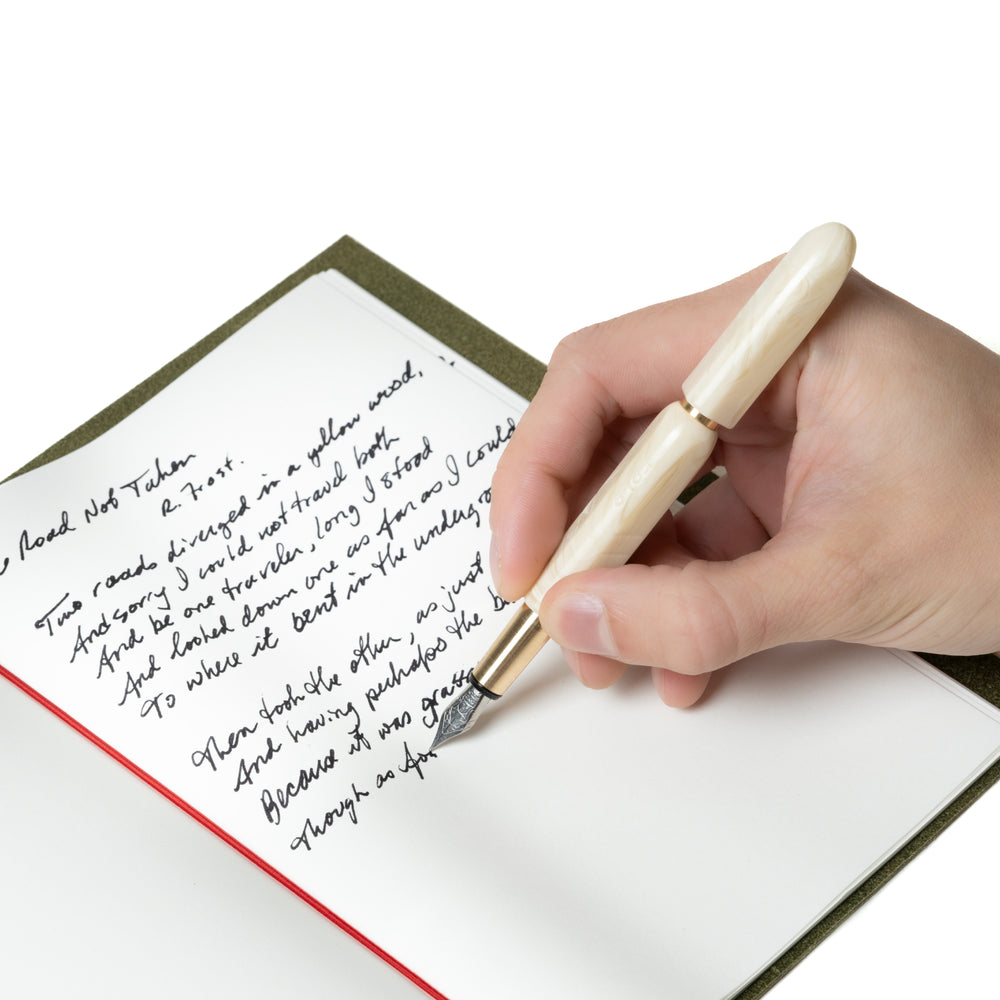 Road Not Taken
R. Frost.
Two roads diverged in a yellow wood,
And sorry I could not travel both
And be one traveler, long I stood
And looked down one as far as I could
To where it bent in the undergro
Then took the other, as just
And having perhaps the b
Because it was grass
Though as for